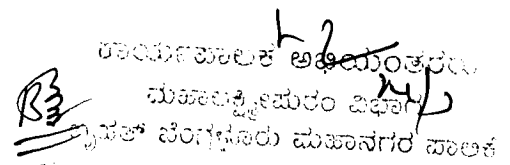 ಕಾರ್ಯಪಾಲಕ ಅಭಿಯಂತರರು
ಮಹಾಲಕ್ಷ್ಮೀಪುರಂ ವಿಭಾಗ
ಬೃಹತ್ ಬೆಂಗಳೂರು ಮಹಾನಗರ ಪಾಲಿಕೆ